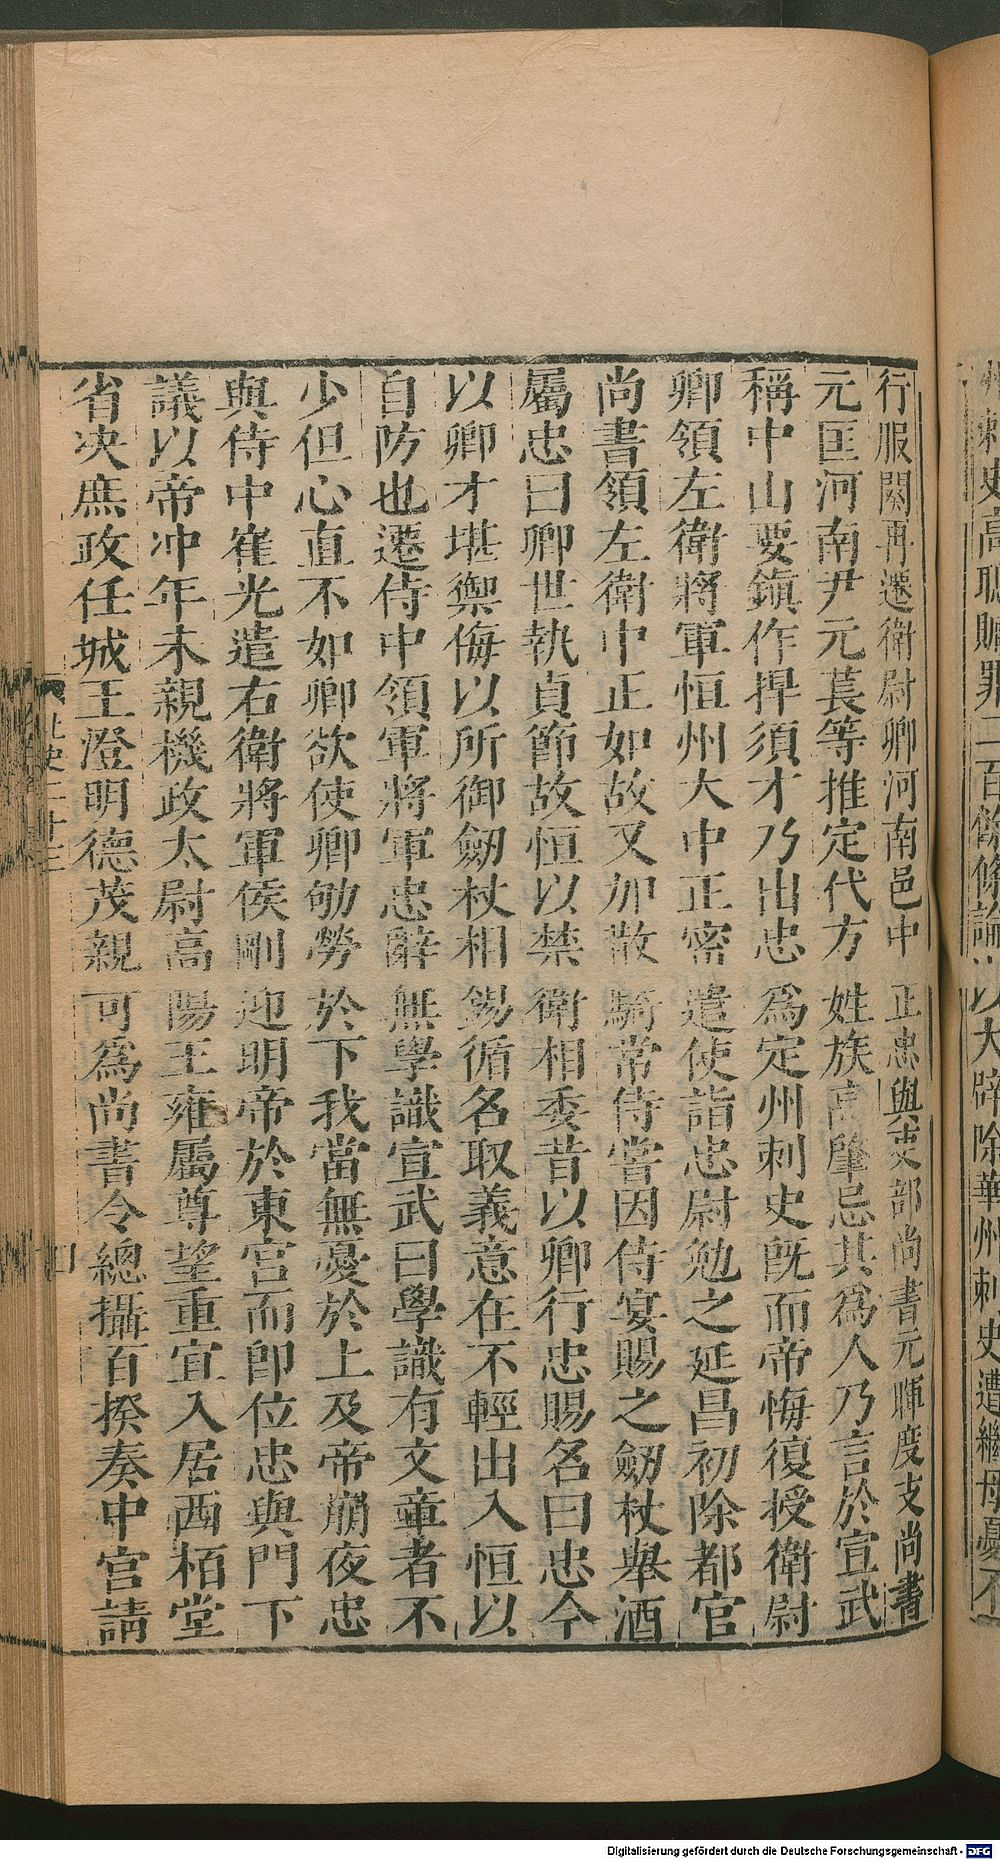 刺史高聰贓罪二百餘條論以大辟除華州刺史遭繼母憂不
行服闋再遷衛尉卿河南邑中正忠與吏部尚書元暉度支尚書
元匡河南尹元萇等推定代方姓族高肇忌其爲人乃言於宣武
稱中山要鎮作捍須才乃出忠爲定州刺史旣而帝悔復授衛尉
卿領左衛將軍恒州大中正密遣使詣忠尉勉之延昌初除都官
尚書領左衛中正如故又加散騎常侍嘗因侍宴賜之劒杖舉酒
屬忠曰卿世執貞節故恒以禁衛相委昔以卿行忠賜名曰忠今
以卿才堪禦侮以所御劒杖相錫循名取義意在不輕出入恒以
自防也遷侍中領軍將軍忠辭無學識宣武曰學識有文章者不
少但心直不如卿欲使卿劬勞於下我當無憂於上及帝崩夜忠
與侍中崔光遣右衛將軍侯剛迎明帝於東宮而卽位忠與門下
議以帝冲年未親機政太尉高陽王雍屬尊望重宜入居西栢堂
省決庶政任城王澄明德茂親可爲尚書令總攝百揆奏中宮請
北史二十三
Digitalisierung gefördert durch die Deutsche Forschungsgemeinschaft - DFG